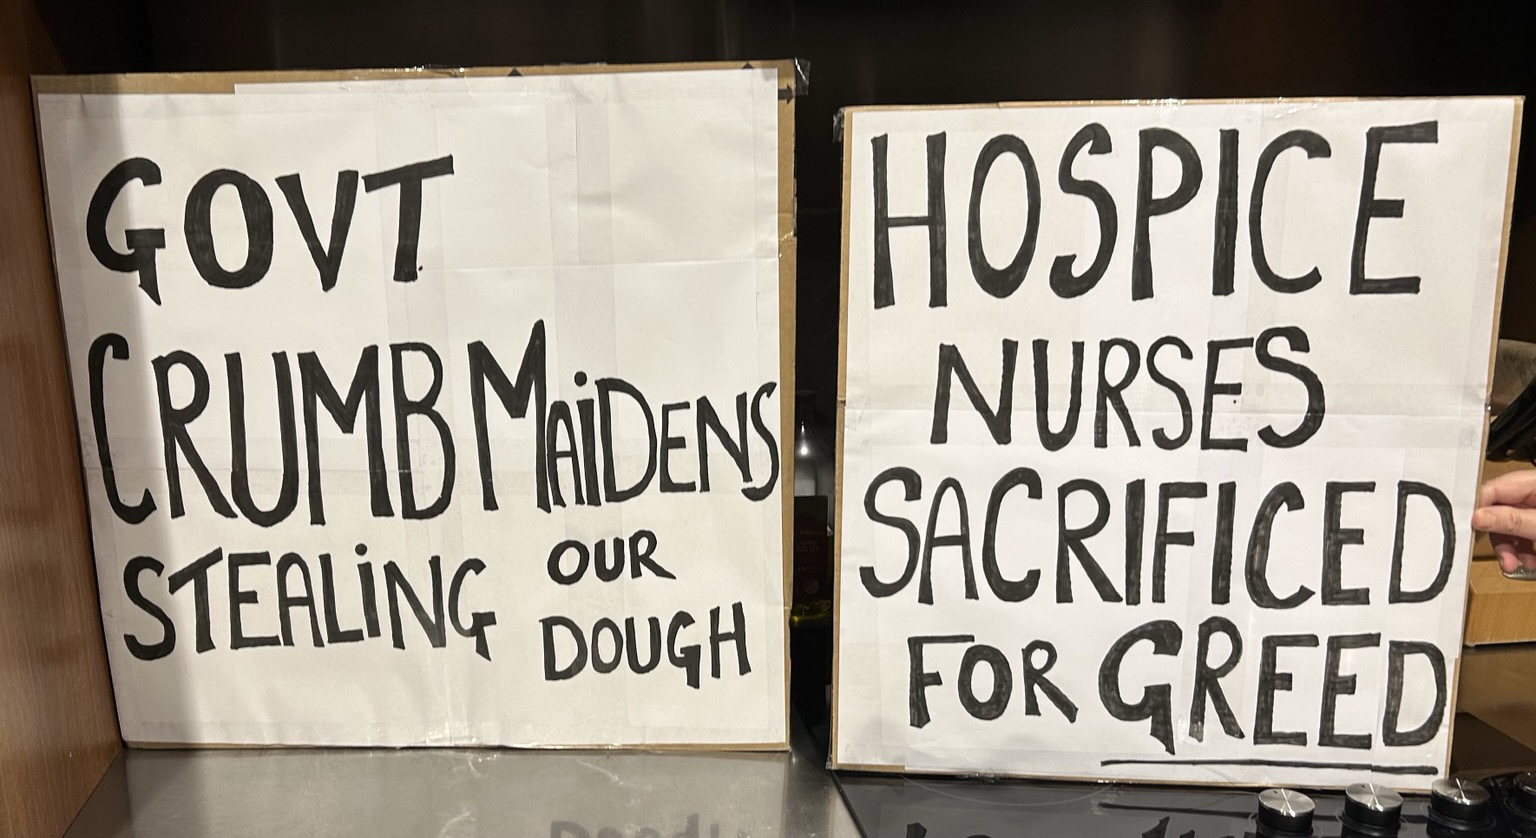 GOVT
CRUMB MAiDENS
STEALiNG OUR
DOUGH
HOSPICE
NURSES
SACRIFICED
FOR GREED